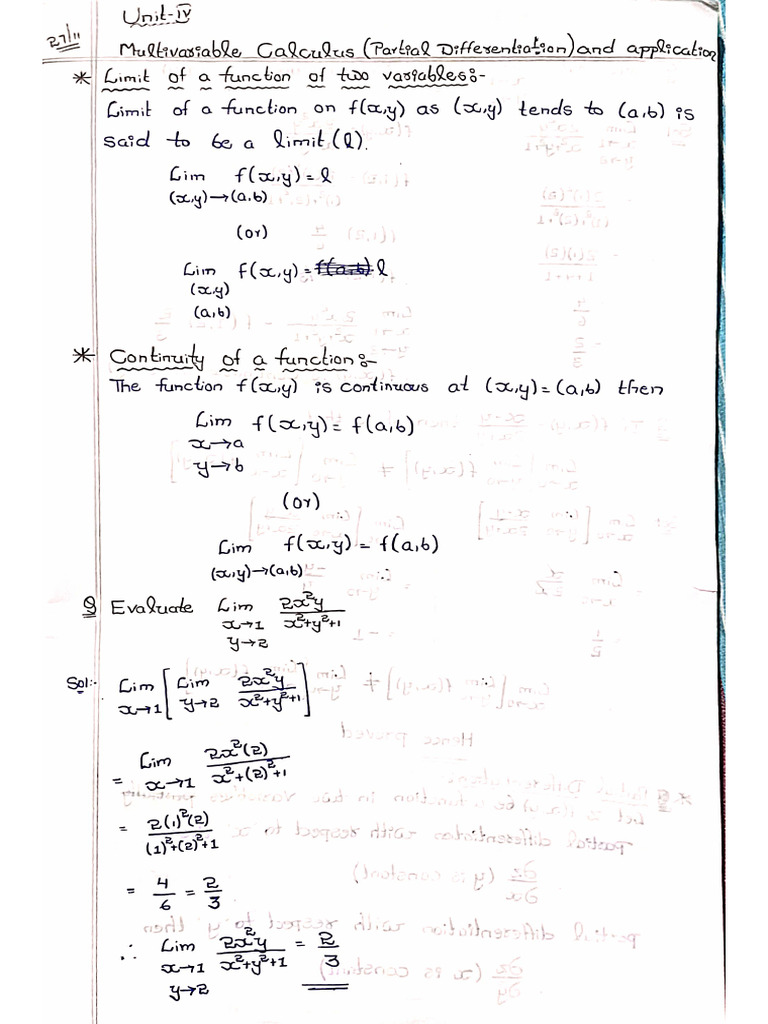 Unit-IV
27/11
Multivariable Calculus (Partial Differentiation) and application
* Limit of a function of two variables:-
Limit of a function on f(x,y) as (x,y) tends to (a,b) is
said to be a limit (l).
Lim f(x,y) = l
(x,y)→(a,b)
(or)
Lim f(x,y) = f(a,b) l
(x,y)
(a,b)
* Continuity of a function:-
The function f(x,y) is continuous at (x,y) = (a,b) then
Lim f(x,y) = f(a,b)
x→a
y→b
(or)
Lim f(x,y) = f(a,b)
(x,y)→(a,b)
Q Evaluate Lim 2x²y / x²+y²+1
x→1
y→2
Sol:- Lim [Lim 2x²y / x²+y²+1]
x→1 y→2
= Lim 2x²(2) / x²+(2)²+1
x→1
= 2(1)²(2) / (1)²+(2)²+1
= 4/6 = 2/3
∴ Lim 2x²y / x²+y²+1 = 2/3
x→1
y→2